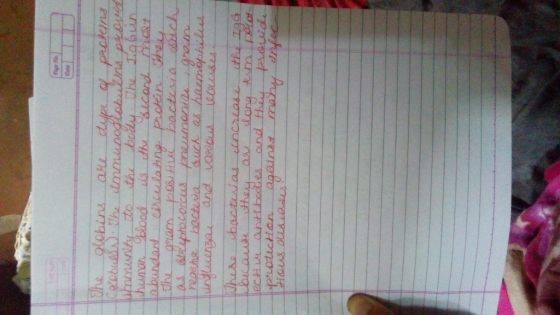 Page No.
Date
The globins are type of proteins
(globular). The immunoglobulins provide
immunity to the body. The IgG in
human blood is the second most
abundant circulating protein. They
the gram positive bacteria such
as streptococcus pneumoniae, gram
negative bacteria such as haemophilus
influenzae and various viruses.
These bacterias increase the IgG
because they are long term
antibodies and they provide
protection against many
diseases